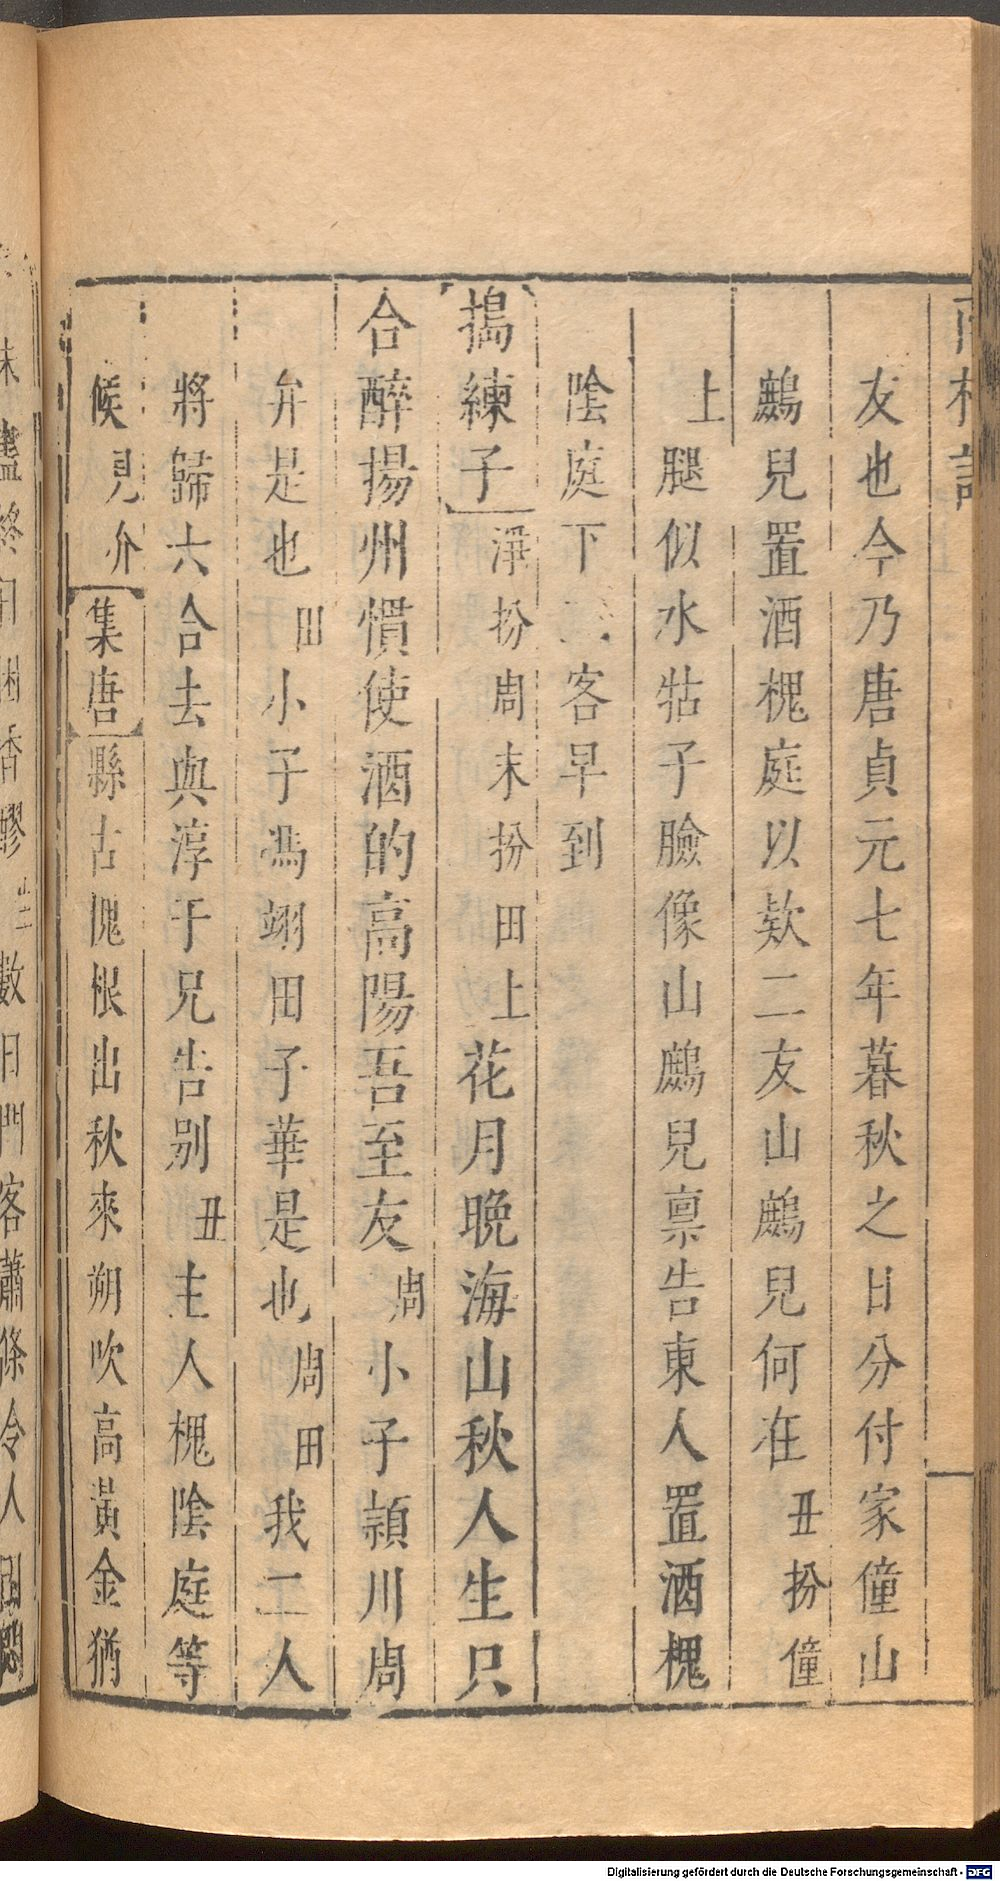 友也今乃唐貞元七年暮秋之日分付家僮山
鷓兒置酒槐庭以欵二友山鷓兒何在丑扮僮
上腿似水牯子臉像山鷓兒禀告東人置酒槐
陰庭下二客早到
搗練子淨扮周末扮田上花月晚海山秋人生只
合醉揚州慣使酒的高陽吾至友周小子頴川周
弁是也田小子馮翊田子華是也周田我二人
將歸六合去與淳于兄告别丑主人槐陰庭等
候見介集唐縣古槐根出秋來朔吹高黃金猶
Digitalisierung gefördert durch die Deutsche Forschungsgemeinschaft - DFG